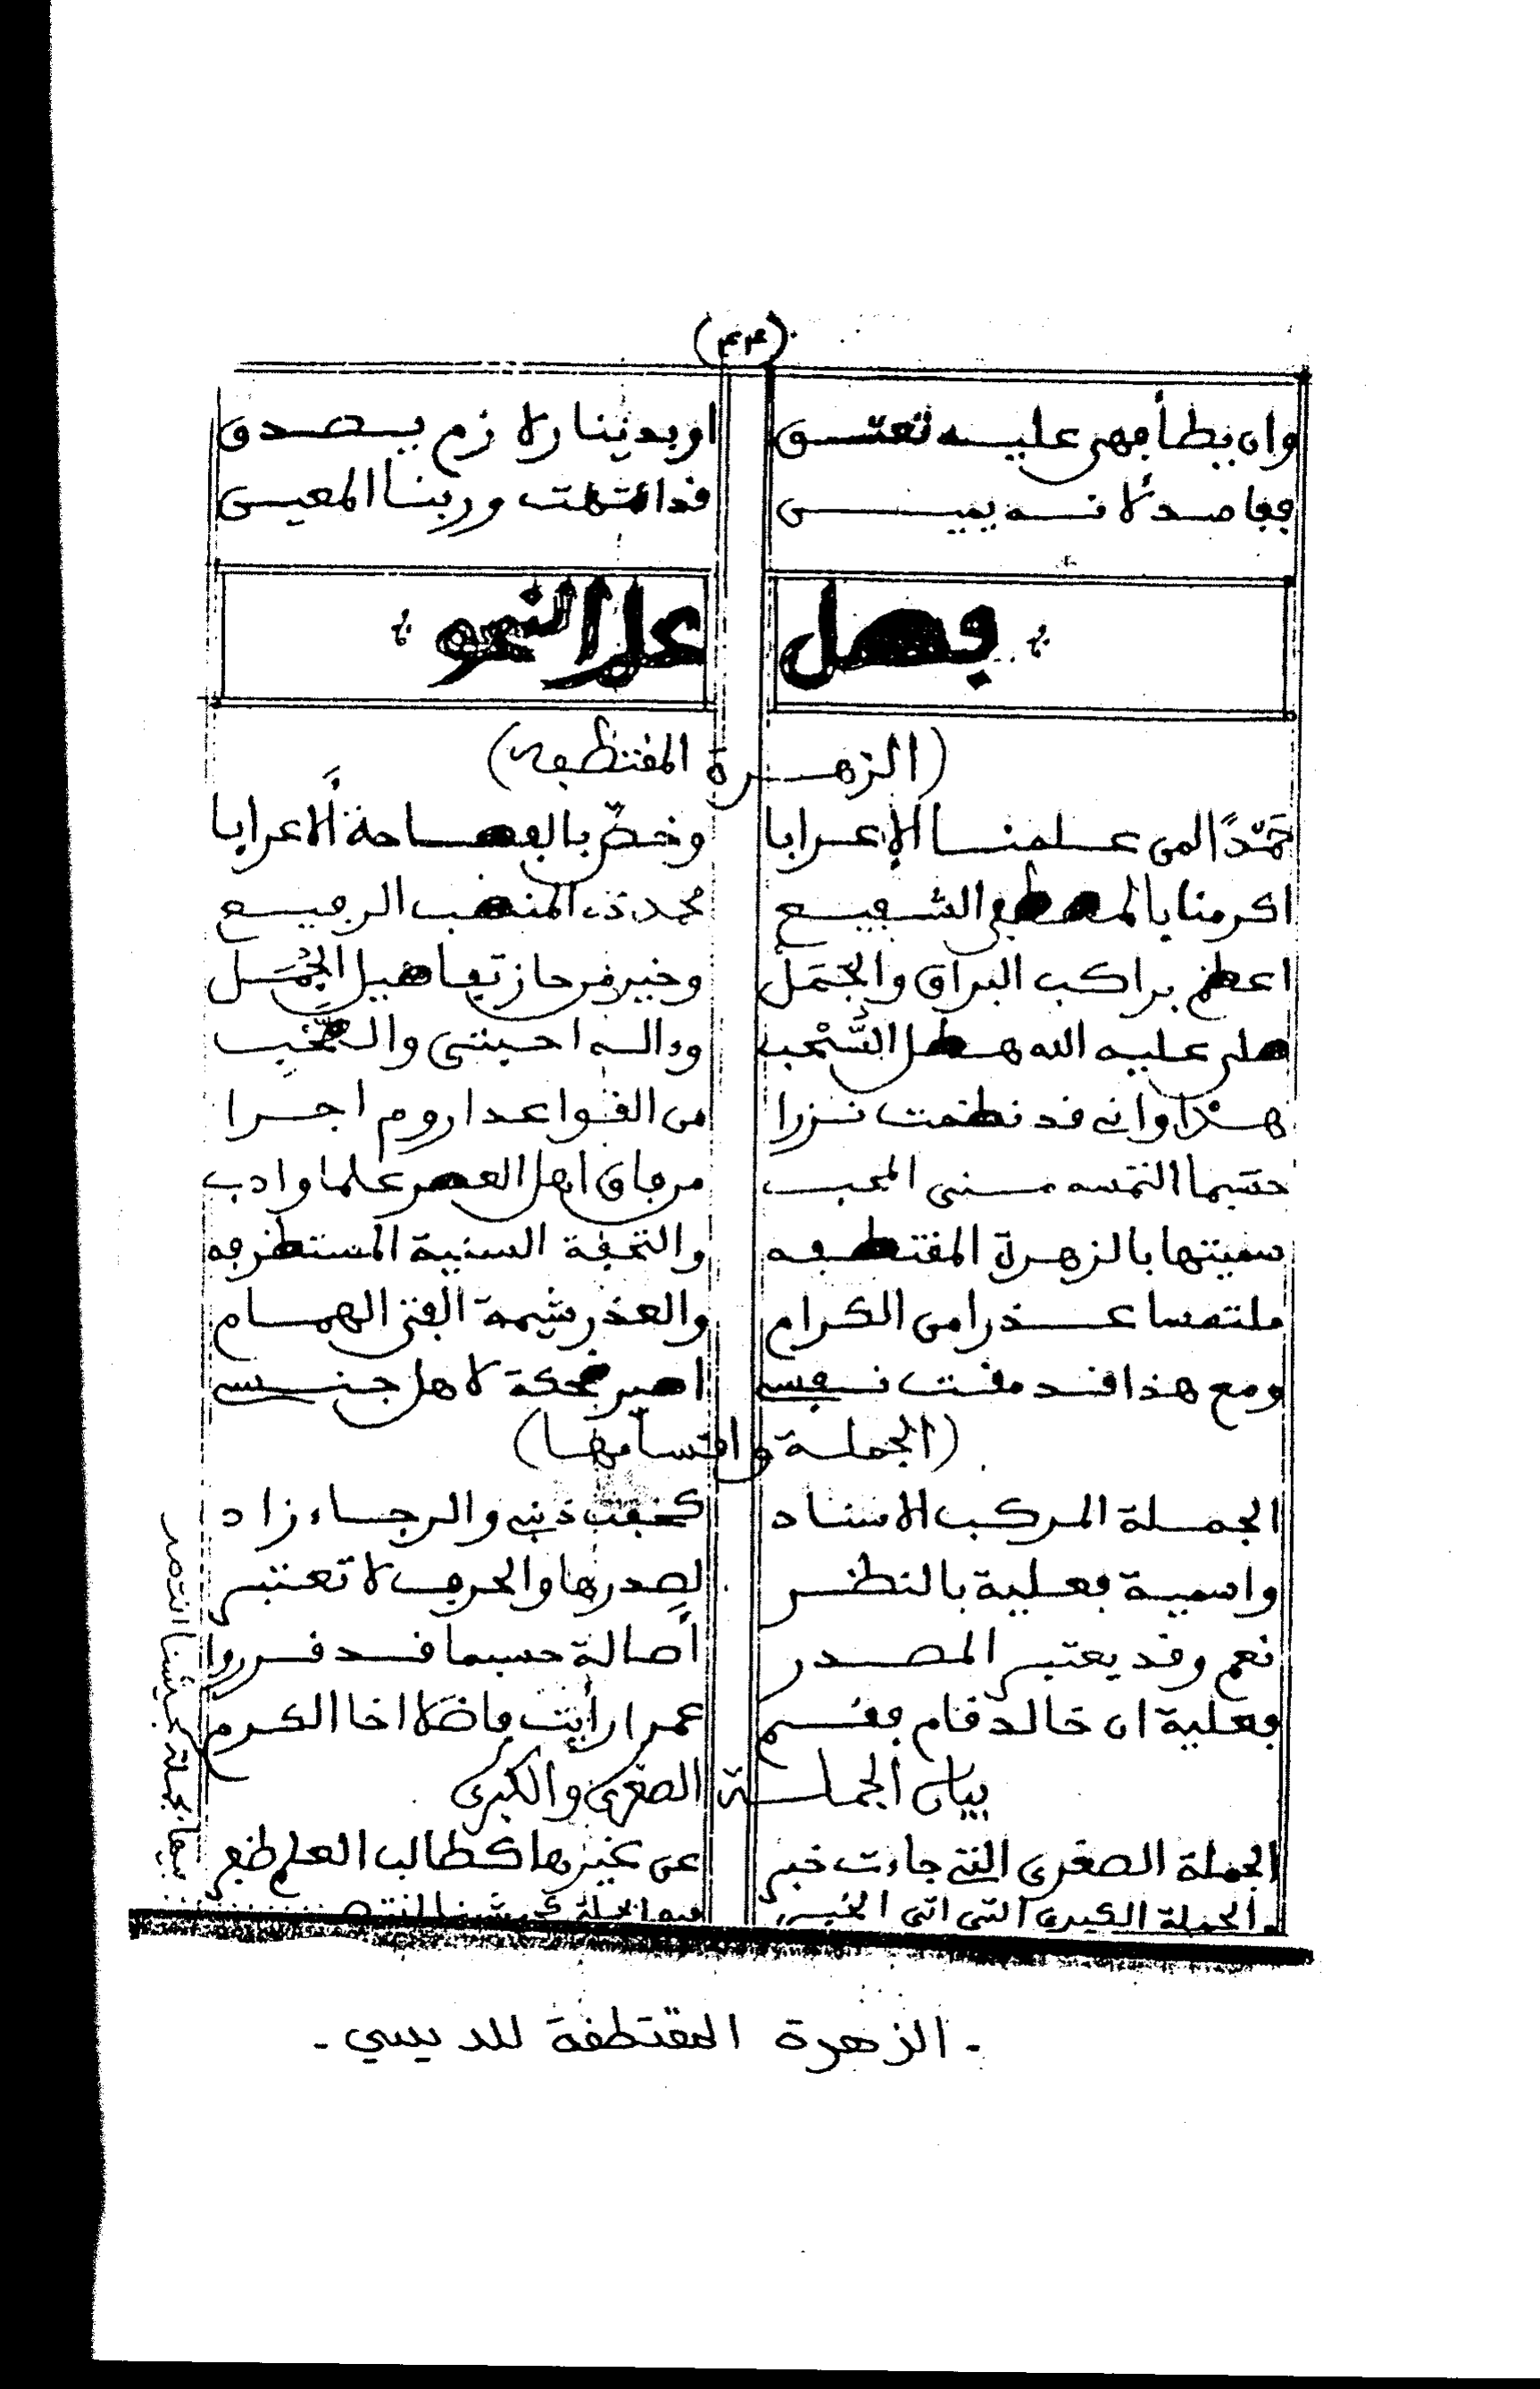 (٣٤)
وان يطأ فهى عليه تعتق اوبدينار لازم يصدق
فقاصد لانه يميى قد انتهت وربنا المعيى
فصل علم النحو
(الزهرة المقتطفه)
حمدًا لمن علمنا الإعرابا وخصّ بالفصاحة ألاعرابا
اكرمنا بالمصطفى الشفيع محمد ذى المنصب الرفيع
اعظم براكب البراق والجمَل وخير من حاز تفاصيل الجُمَل
صلى عليه الله هطل السُّحْب وءاله احبتى والصحب
هذا وانى قد نظمت نزرا من القواعد اروم اجرا
حسبما التمسه منى المحب من فاق اهل العصر علما وادب
سميتها بالزهرة المقتطفه والتحفة السنية المستطرفه
ملتمسا عذرا من الكرام والعذر شيمة الفتى الهمام
ومع هذا قد مقت نفسى اصير ضحكة لاهل جنسى
(الجملة واقسامها)
الجملة المركب الاسناد كخفت ذنبى والرجاء زاد
واسمية فعلية بالنظر لصدرها والحرف لا تعتبر
نعم وقد يعتبر المصدر أصالة حسبما قد قرروا
فعلية ان خالد قام فقم عمرا رأيت فاضلا اخا الكرم
بيان الجملة الصغرى والكبرى
الجملة الصغرى التى جاءت خبر عن غيرها كطالب العلم ظفر
والجملة الكبرى التى اتى الخبر فيها بجملة كجيشنا انتصر
فيها بجملة كجيشنا انتصر
- الزهرة المقتطفة للديسي -